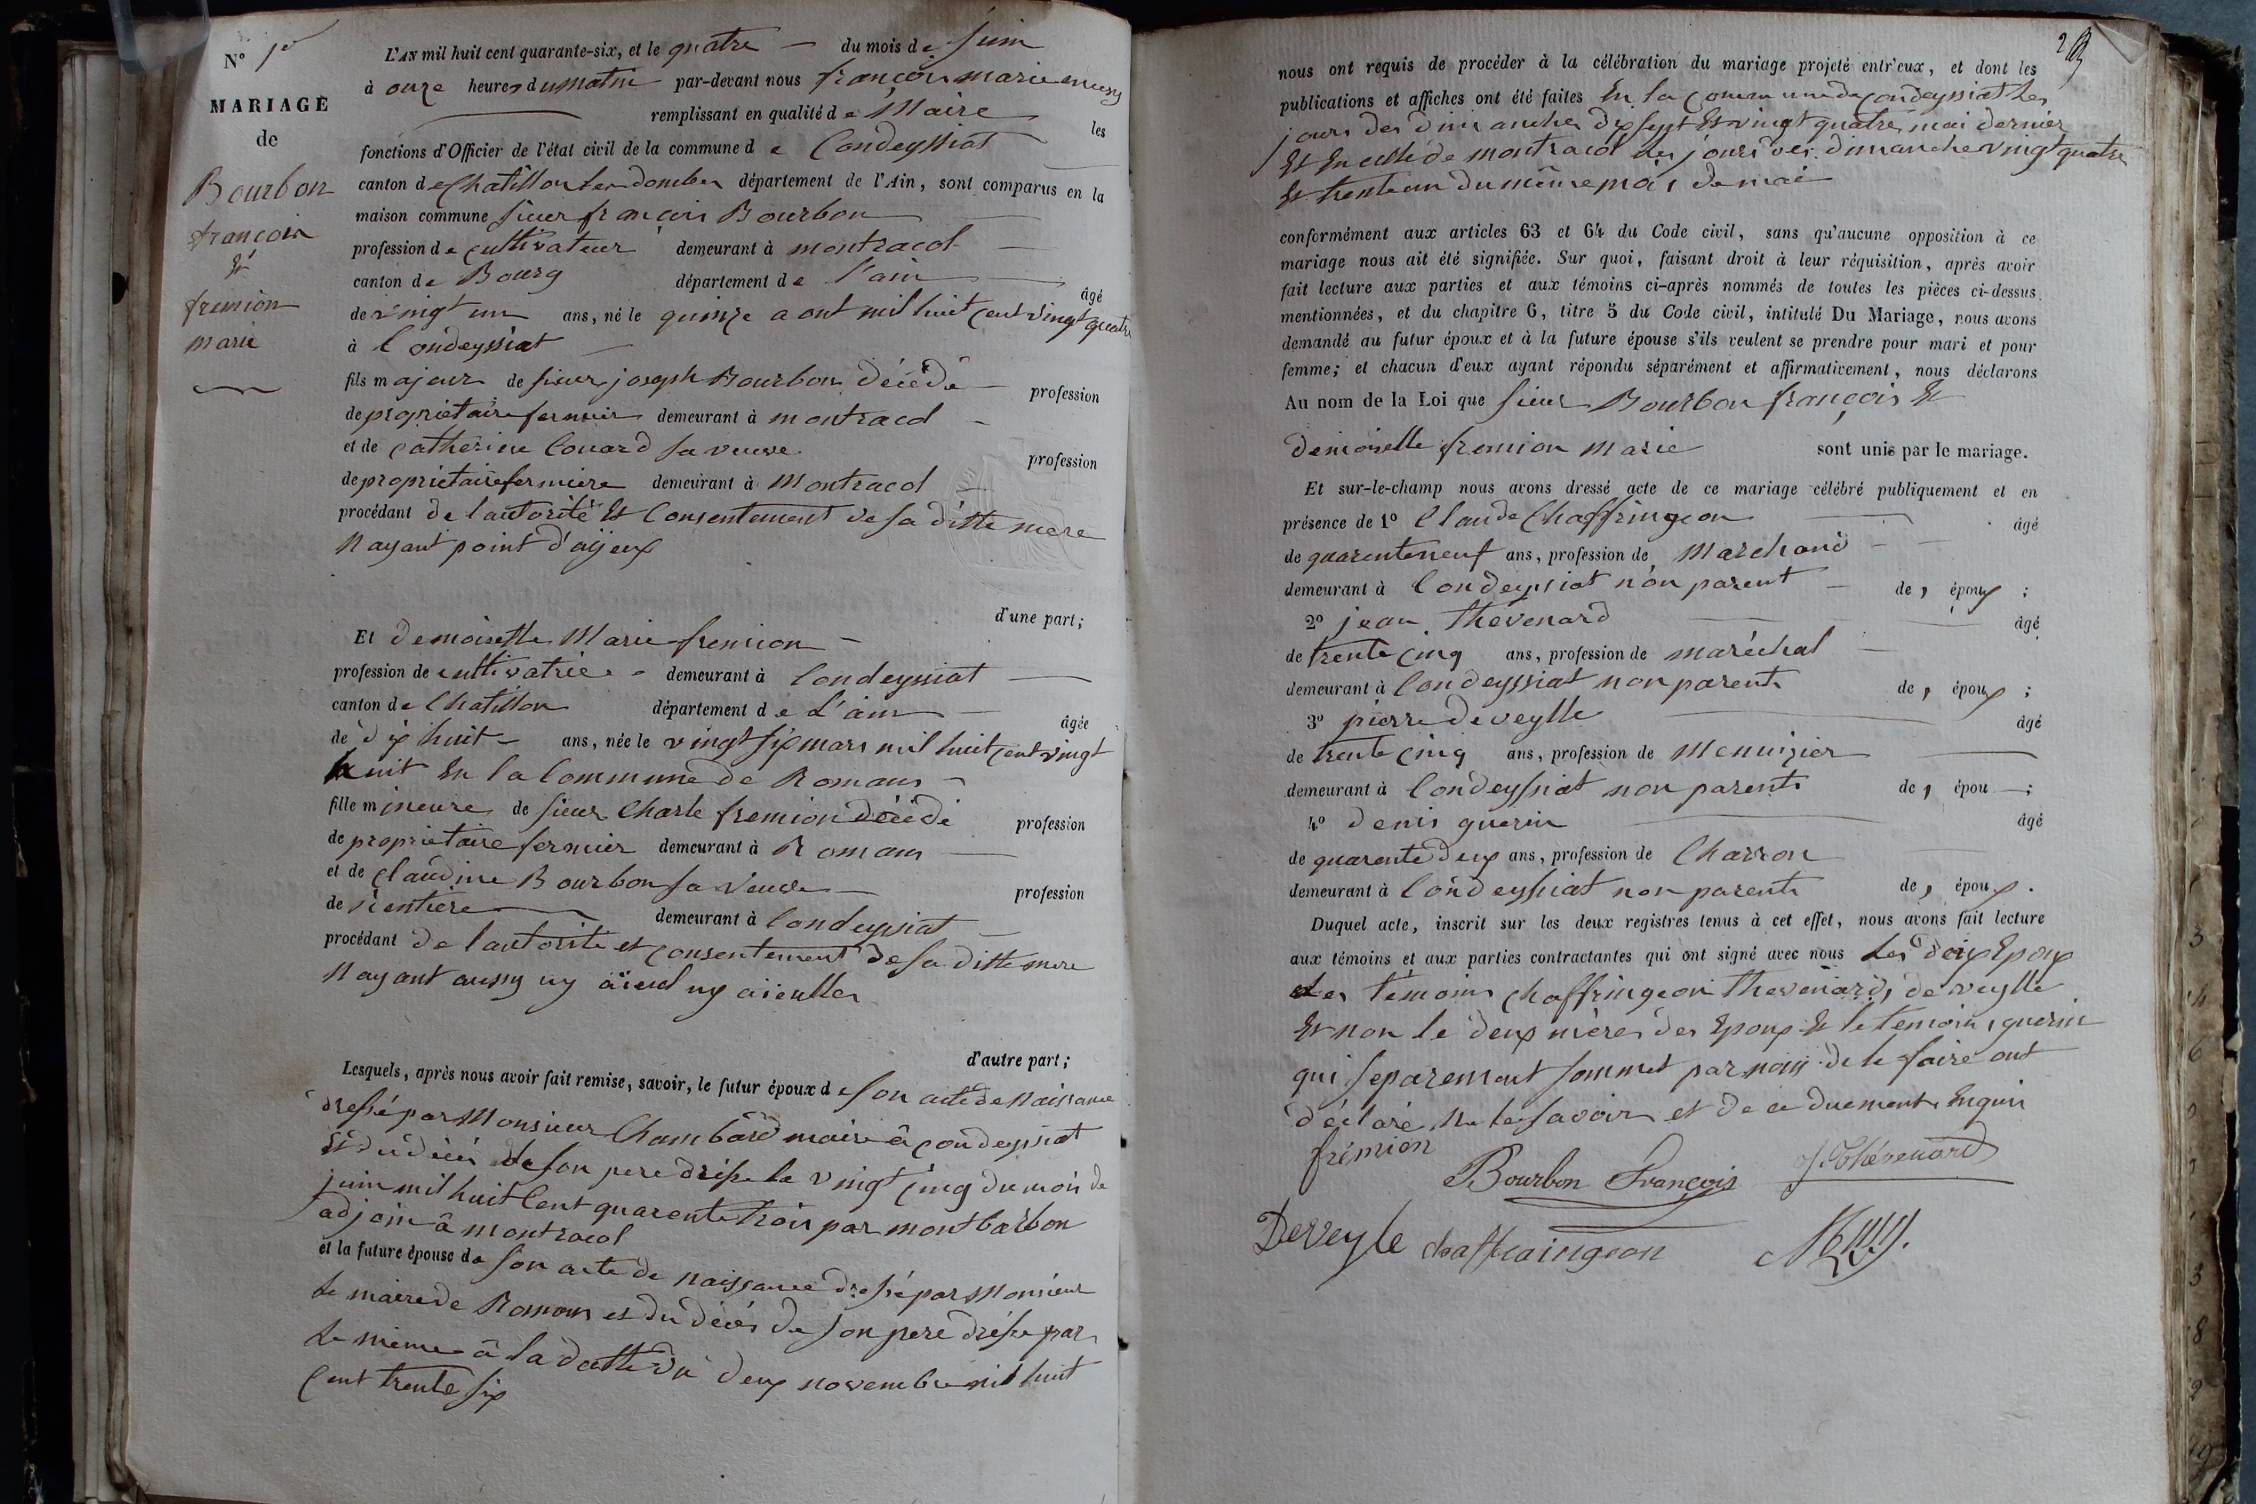 N° 1er
MARIAGE
de
Bourbon
françois
Et
fremion
marie
L'AN mil huit cent quarante-six, et le quatre du mois de Juin
à onze heures du matin par-devant nous françois marie
remplissant en qualité de Maire les
fonctions d'Officier de l'état civil de la commune de Condeyssiat
canton de Chatillon les dombes département de l'Ain, sont comparus en la
maison commune sieur françois Bourbon
profession de cultivateur demeurant à montracol
canton de Bourg département de l'ain âgé
de vingt un ans, né le quinze aout mil huit cent vingt quatre
à Condeyssiat
fils majeur de sieur joseph Bourbon décédé profession
de propriétaire fermier demeurant à montracol
et de catherine Couard sa veuve profession
de propriétaire fermiere demeurant à Montracol
procédant de l'autorité Et Consentement de sa ditte mere
Nayant point d'aÿeux
d'une part;
Et demoiselle Marie fremion
profession de cultivatrice demeurant à Condeyssiat
canton de Chatillon département de L'ain âgée
de dix huit ans, née le vingt six mars mil huit cent vingt
huit En la Commune de Romans
fille mineure de sieur Charle fremion décédé profession
de propriétaire fermier demeurant à Romans
et de claudine Bourbon sa veuve profession
de rentière demeurant à Condeyssiat
procédant de l'autorité et consentement de sa ditte mere
Nayant aussy ny aïeul ny aieulles
d'autre part;
Lesquels, après nous avoir fait remise, savoir, le futur époux de son acte de Naissance
dressé par Monsieur Chambard maire à condeyssiat
Et du décés de son pere dréssé le vingt cinq du mois de
juin mil huit Cent quarente trois par montbarbon
adjoin â montracol
et la future épouse de son acte de naissance dressé par Monsieur
Le maire de Romans et du décés de son pere dréssé par
Le même â la datte du deux novembre mil huit
Cent trente six
2
nous ont requis de procéder à la célébration du mariage projeté entr'eux, et dont les
publications et affiches ont été faites En la commune de condeyssiat Les
jours des dimanches dix sept Et vingt quatre mai dernier
Et En celle de montracol les jours des dimanche vingt quatre
Et trente un du même mois de mai
conformément aux articles 63 et 64 du Code civil, sans qu'aucune opposition à ce
mariage nous ait été signifiée. Sur quoi, faisant droit à leur réquisition, après avoir
fait lecture aux parties et aux témoins ci-après nommés de toutes les pièces ci-dessus
mentionnées, et du chapitre 6, titre 5 du Code civil, intitulé Du Mariage, nous avons
demandé au futur époux et à la future épouse s'ils veulent se prendre pour mari et pour
femme; et chacun d'eux ayant répondu séparément et affirmativement, nous déclarons
Au nom de la Loi que sieur Bourbon françois Et
demoiselle fremion Marie sont unis par le mariage.
Et sur-le-champ nous avons dressé acte de ce mariage célébré publiquement et en
présence de 1° Claude Chaffringeon âgé
de quarente neuf ans, profession de Marchand
demeurant à Condeyssiat non parent de, époux ;
2° jean Thevenard âgé
de trente cinq ans, profession de maréchal
demeurant à Condeyssiat non parent de, époux ;
3° pierre deveylle âgé
de trente cinq ans, profession de Menuizier
demeurant à Condeyssiat non parent de, épou ;
4° denis guerin âgé
de quarente deux ans, profession de Charron
demeurant à Condeyssiat non parent de, époux.
Duquel acte, inscrit sur les deux registres tenus à cet effet, nous avons fait lecture
aux témoins et aux parties contractantes qui ont signé avec nous Les deux Epoux
Les témoins chaffringeon Thevenard, deveylle
Et non le deux mères des Epoux Et le temoin guerin
qui separement sommet par nous de le faire ont
déclaré ne le savoir et de ce duement Enquis
frémion
Bourbon François
J. Thévenard
Deveyle chaffraingeon